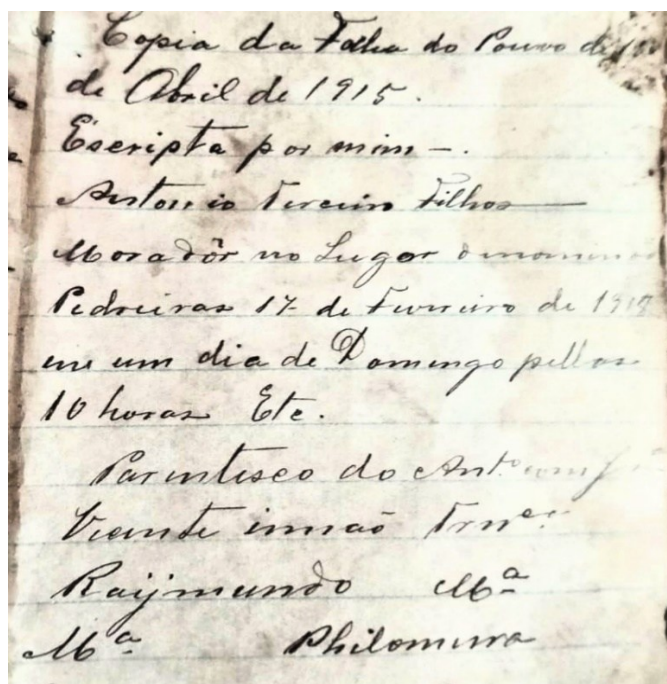 Copia da Folha do Pouvo de
de Abril de 1915.
Escripta por mim -.
Antonio Filhos
Moradôr no Lugar
Pedreiras 17 de Fevreiro de 1918
em um dia de Domingo pellas
10 horas Etc.
Parentesco do Antº com
Vicente irmaõ
Raijmundo Mª
Mª Philomena